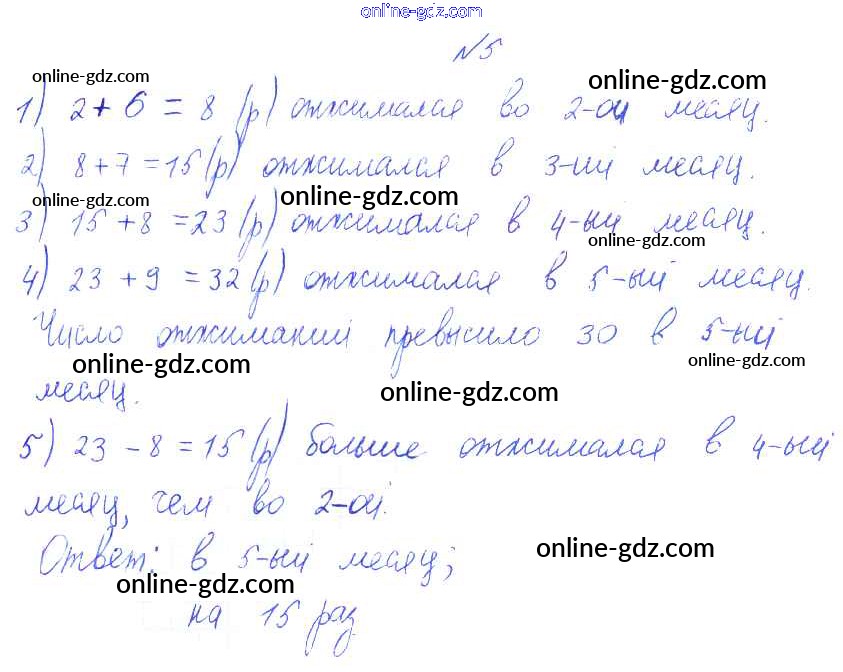 online-gdz.com
№5
online-gdz.com
online-gdz.com
1) 2+6=8 (р) отжимался во 2-ой месяц.
2) 8+7=15 (р) отжимался в 3-ий месяц.
online-gdz.com
online-gdz.com
3) 15+8=23 (р) отжимался в 4-ый месяц.
online-gdz.com
4) 23+9=32 (р) отжимался в 5-ый месяц.
Число отжиманий превысило 30 в 5-ый
online-gdz.com
online-gdz.com
месяц.
online-gdz.com
5) 23-8=15 (р) больше отжимался в 4-ый
месяц, чем во 2-ой.
Ответ: в 5-ый месяц;
online-gdz.com
online-gdz.com
на 15 раз